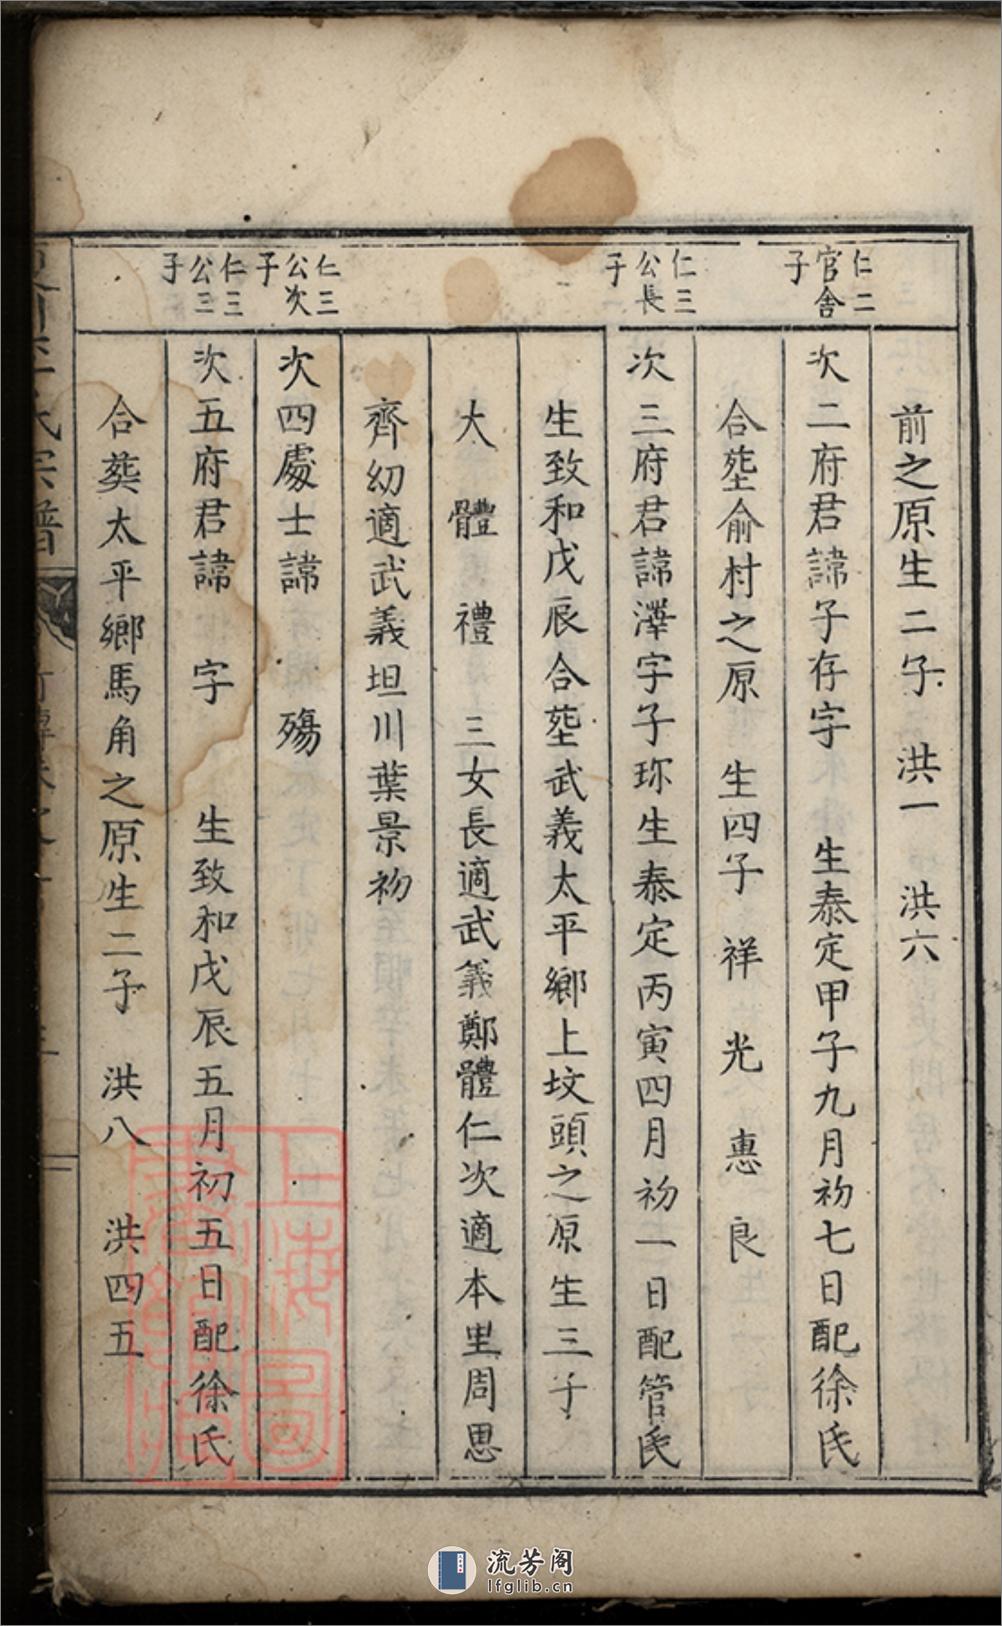 前之原生二子 洪一 洪六
仁二官舍子
次二府君諱子存字 生泰定甲子九月初七日配徐氏
合塟俞村之原 生四子 祥 光 惠 良
仁三公長子
次三府君諱澤字子珎生泰定丙寅四月初一日配管氏
生致和戊辰合塟武義太平鄉上坟頭之原生三子
大 體 禮 三女長適武義鄭體仁次適本里周思
齊幼適武義坦川葉景初
仁三公次子
次四處士諱 殤
仁三公三子
次五府君諱 字 生致和戊辰五月初五日配徐氏
合葬太平鄉馬角之原生二子 洪八 洪四五
氏宗譜
上海圖書館藏
流芳阁
lfglib.cn